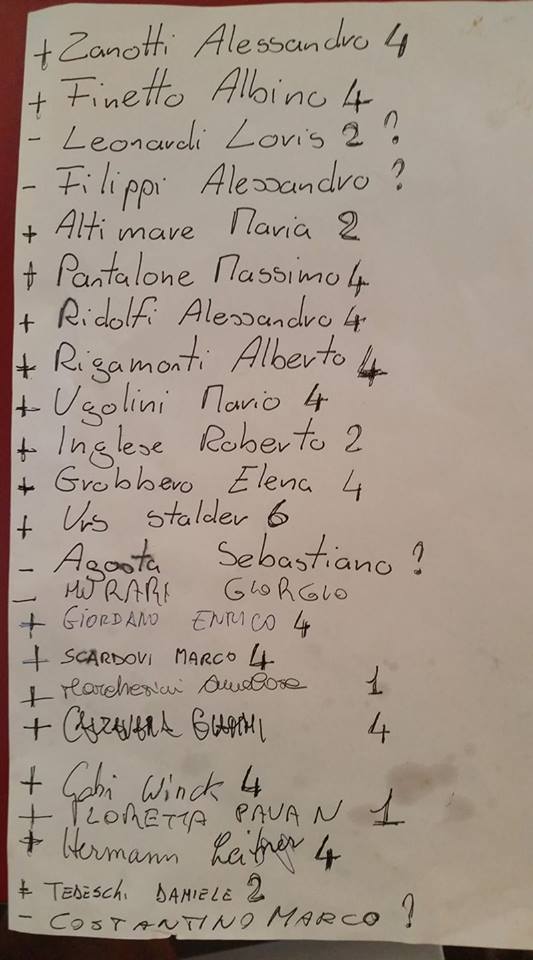 + Zanotti Alessandro 4
+ Finetto Albino 4
- Leonardi Loris 2 ?
- Filippi Alessandro ?
+ Altimare Maria 2
+ Pantalone Massimo 4
+ Ridolfi Alessandro 4
+ Rigamonti Alberto 4
+ Ugolini Mario 4
+ Inglese Roberto 2
+ Grobbero Elena 4
+ Urs stalder 6
- Agosta Sebastiano ?
- MURARI GIORGIO
+ GIORDANO ENRICO 4
+ SCARDOVI MARCO 4
+ 1
+ 4
+ Gabi Winck 4
+ LORETTA PAVAN 1
+ Hermann 4
+ TEDESCHI DANIELE 2
- COSTANTINO MARCO ?